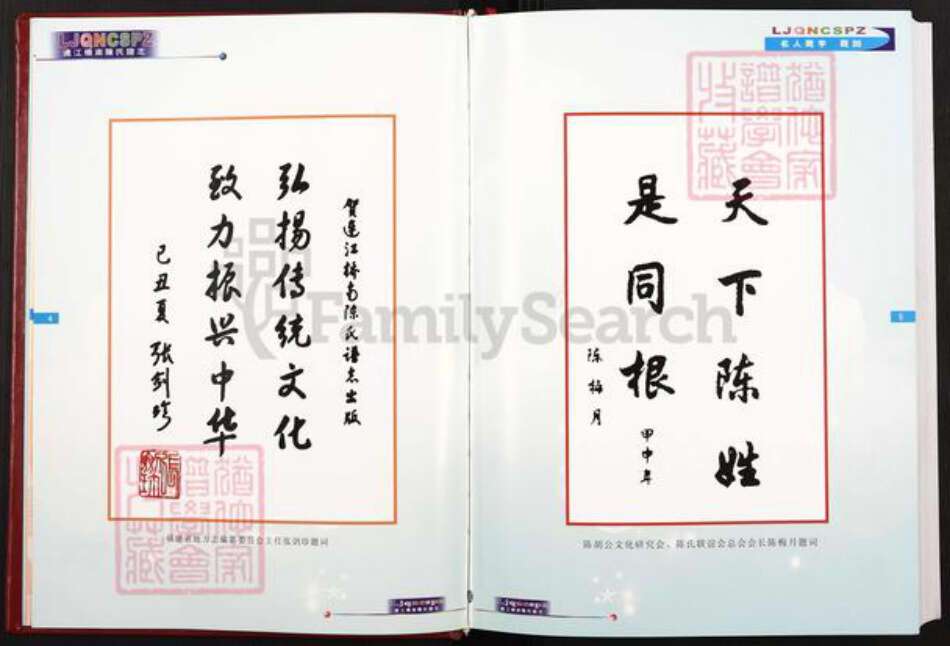 LJQNCSPZ
连江桥南陈氏谱志
贺连江桥南陈氏谱志出版
弘揚传统文化
致力振兴中华
己丑夏 张剑珍
福建省地方志编纂委员会主任张剑珍题词
4
LJQNCSPZ
天下陈姓
是同根
甲申年
陈梅月
陈胡公文化研究会、陈氏联谊会总会会长陈梅月题词
5
FamilySearch